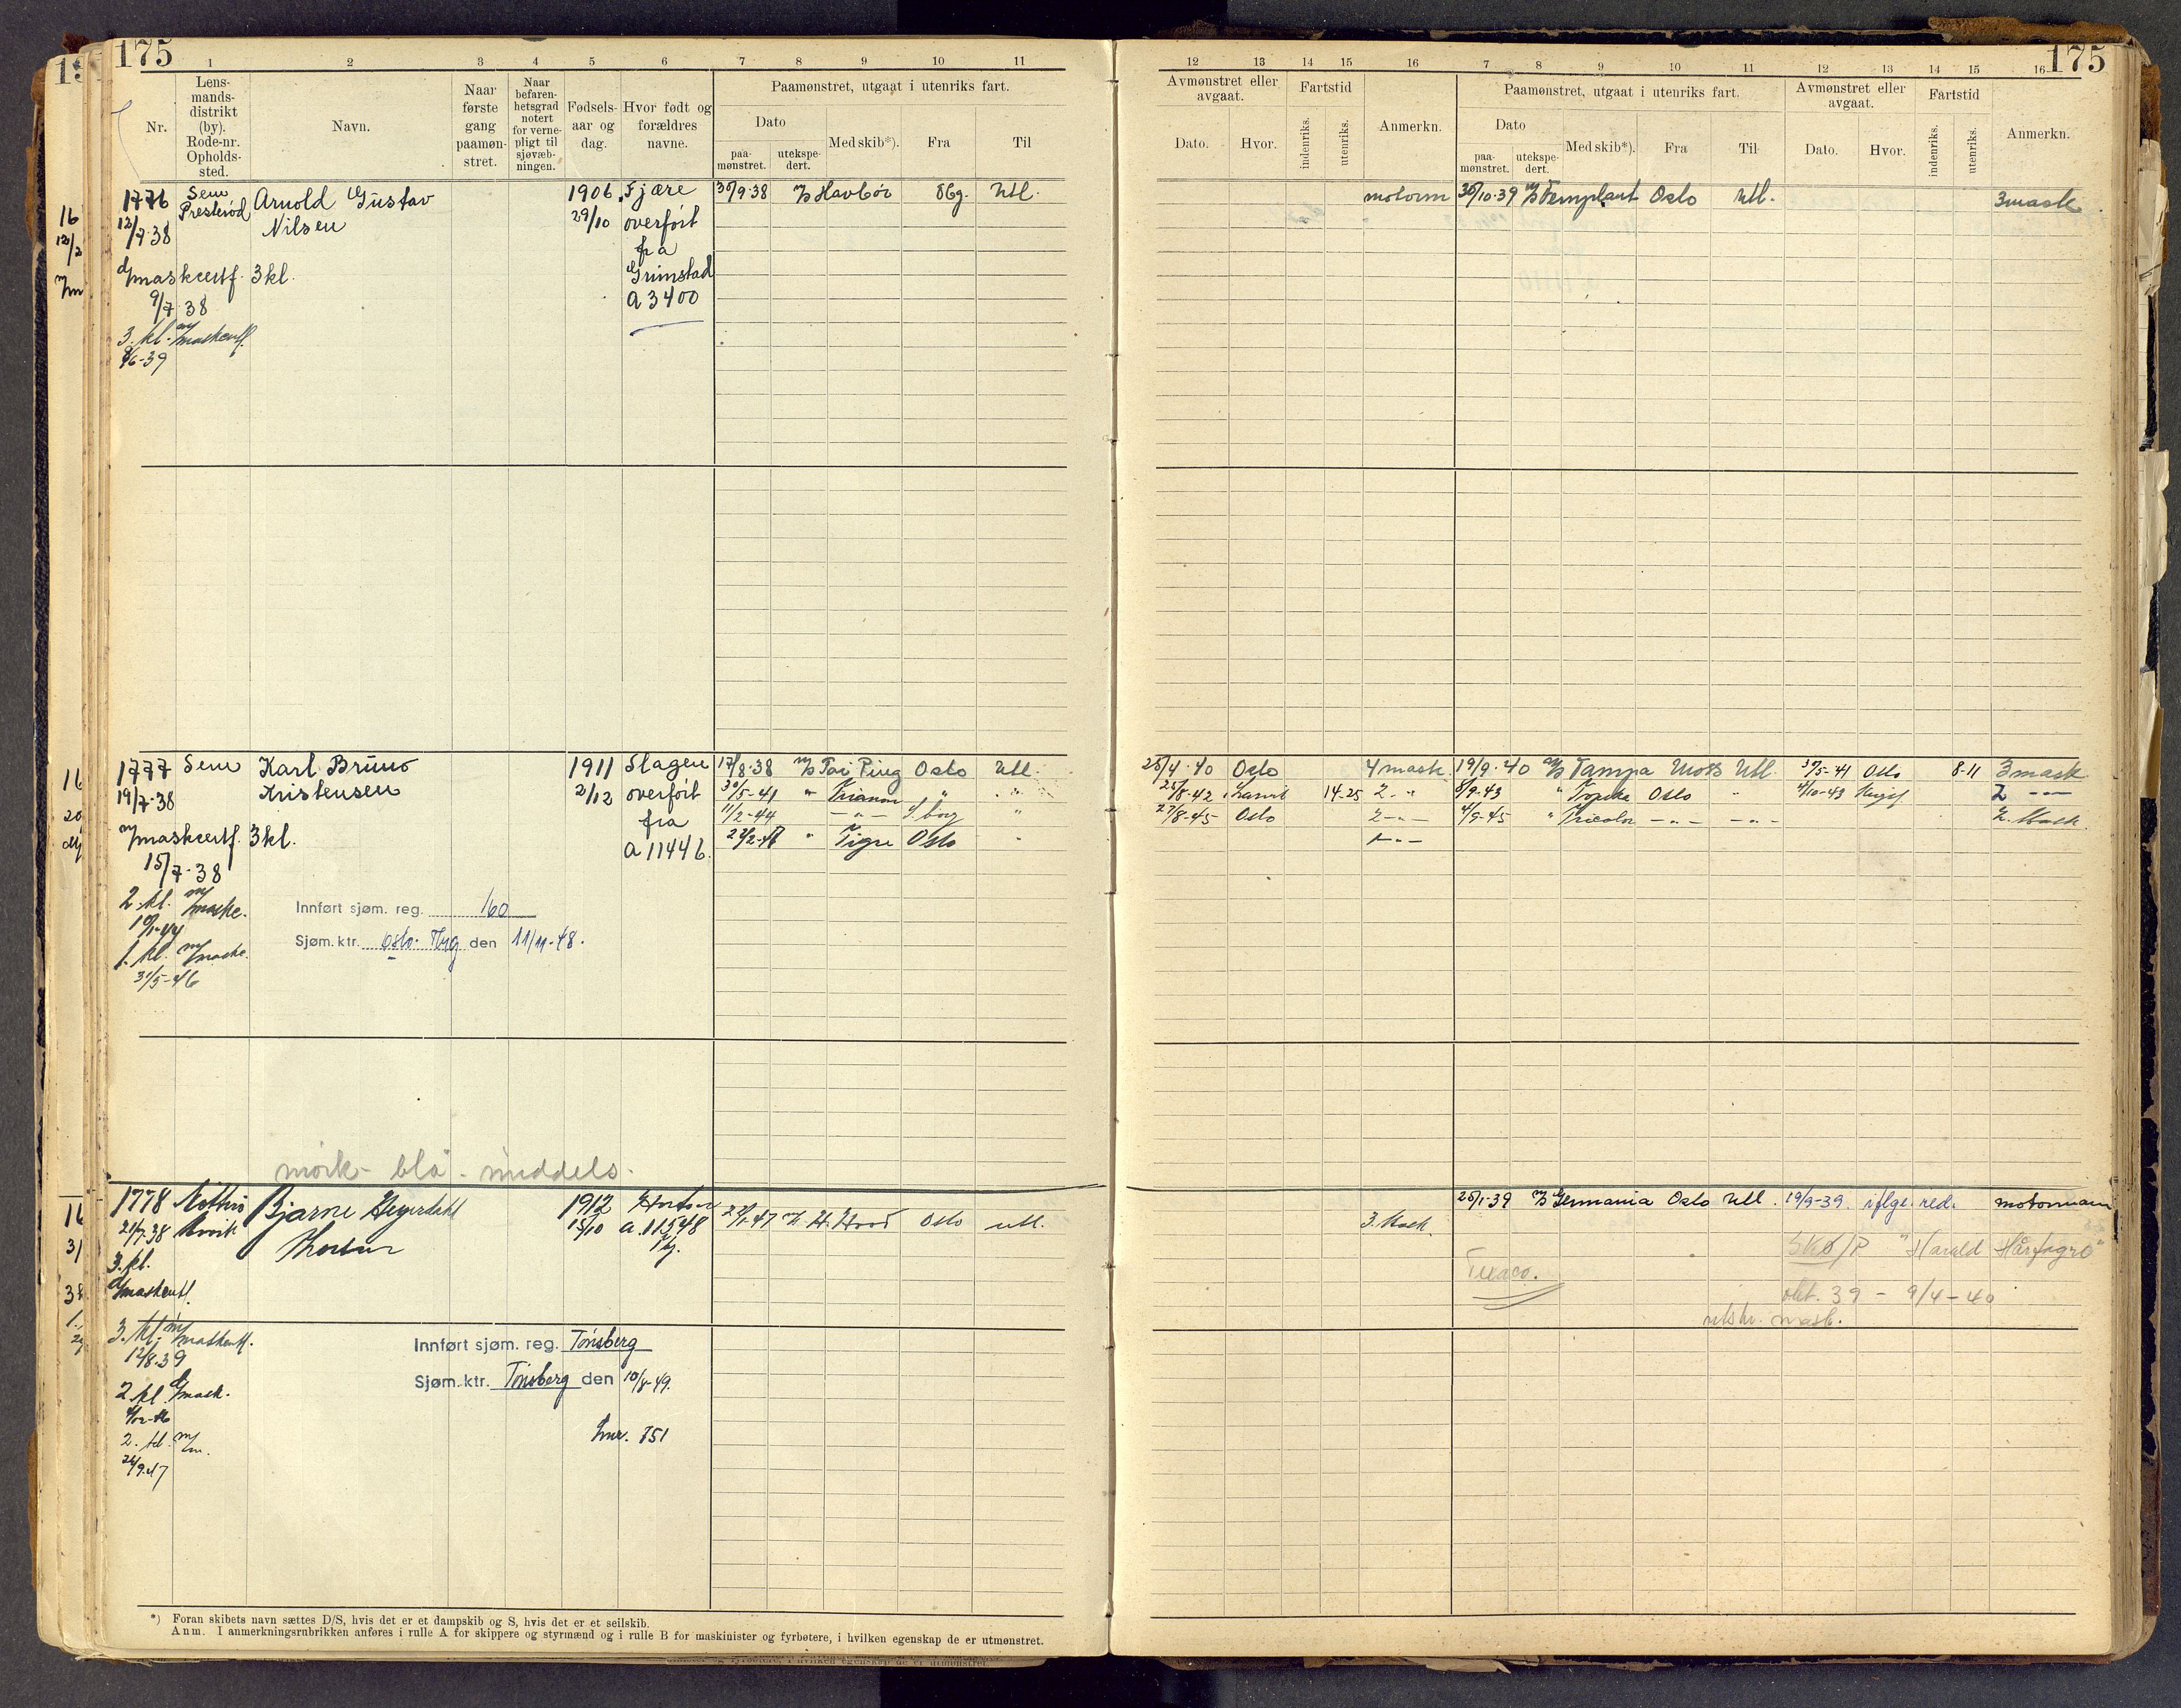 175
1 2 3 4 5 6 7 8 9 10 11
Nr.
Lens-
mands-
distrikt
(by).
Rode-nr.
Opholds-
sted.
Navn.
Naar
første
gang
paamøn-
stret.
Naar
befaren-
hetsgrad
notert
for verne-
pligt til
sjøvæb-
ningen.
Fødsels-
aar og
dag.
Hvor født og
forældres
navne.
Paamønstret, utgaat i utenriks fart.
Dato
paa-
mønstret.
utekspe-
dert.
Med skib*).
Fra
Til
1776 Sem Arnold Gustav 1906 Fjære 30/9-38 M/S Havbør Sbg. Utl.
12/7-38 Presterød Nilsen 29/10 overført
fra
Grimstad
A 3400
d/maskcertf. 3 kl.
9/7 38
3. kl. m/maskcertf.
9/6-39
1777 Sem Karl Bruno 1911 Slagen 17/8-38 M/S Tai Ping Oslo Utl.
19/7-38 Kristensen 2/12 overført 30/5-41 " Trianon " "
fra 11/2-44 - " - "
A 11446. " Tigre Oslo "
m/maskcertf. 3 kl.
15/7-38
2. kl. m/maske.
Innført sjøm. reg. 160
Sjøm. ktr. Oslo. den 11/11-48.
1. kl. m/maske.
31/5-46
mörk - blå - middels.
1778 Bjarne 1912 Horten H. Hood Oslo utl.
21/7-38 Thorsen 15/10 A. 11548
3. kl.
d/maskcertf.
3. kl. m/maskcertf.
12/8 39
Innført sjøm. reg. Tönsberg
Sjøm. ktr. Tönsberg den 10/8-49.
2 kl. d/mask.
2. kl. m/m.
24/9-47
Lnr. 751
*) Foran skibets navn sættes D/S, hvis det er et dampskib og S, hvis det er et seilskib.
Anm. I anmerkningsrubrikken anføres i rulle A for skippere og styrmænd og i rulle B for maskinister og fyrbøtere, i hvilken egenskap de er utmønstret.
175
12 13 14 15 16 7 8 9 10 11 12 13 14 15 16
Avmønstret eller
avgaat.
Dato. Hvor.
Fartstid
indenriks. utenriks.
Anmerkn.
Paamønstret, utgaat i utenriks fart.
Dato
paa-
mønstret.
utekspe-
dert.
Med skib*).
Fra
Til
Avmønstret eller
avgaat.
Dato. Hvor.
Fartstid
indenriks. utenriks.
Anmerkn.
motorm 30/10-39 M/S Fernplant Oslo Utl. 3 mask.
25/4-40 Oslo 4 mask. 19/9-40 M/S Tampa Utl. 5-41 Oslo 8-11 3 mask
25/8-42 14-25 2 - " 8/9-43 " Oslo " 10-43 2 - " -
27/8-45 Oslo 2 - " - 4/9-45 " Tricolor - " - - " - 2. Mask.
1 - " -
25/1-39 M/S Germania Oslo Utl. 19/9-39. ifølge red. motormann
3. Mask.
"Harald Hårfagre"
Texaco.
okt. 39 - 9/4-40
mask.